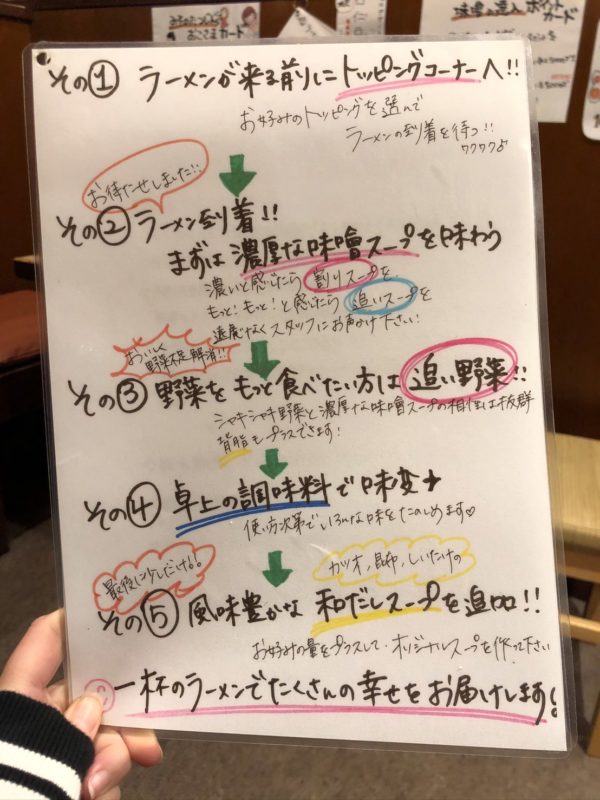 みそのたつじん
おこさまカード
味噌の達人 ポイント
カード
その① ラーメンが来る前にトッピングコーナーへ!!
お好みのトッピングを選んで
ラーメンの到着を待つ!!
ワクワク♪
お待たせしました!!
その② ラーメン到着!!
まずは濃厚な味噌スープを味わう
濃いと感じたら割りスープを、
もっと!もっと!と感じたら追いスープを
遠慮なくスタッフにお声かけ下さい!
おいしく
野菜不足解消!!
その③ 野菜をもっと食べたい方は追い野菜!!
シャキシャキ野菜と濃厚な味噌スープの相性は抜群
背脂もプラスできます!
その④ 卓上の調味料で味変
使い方次第でいろんな味をたのしめます♡
最後に少しだけ!!
カツオ、昆布、しいたけの
その⑤ 風味豊かな和だしスープを追加!!
お好みの量をプラスして、オリジナルスープを作って下さい
一杯のラーメンでたくさんの幸せをお届けします!